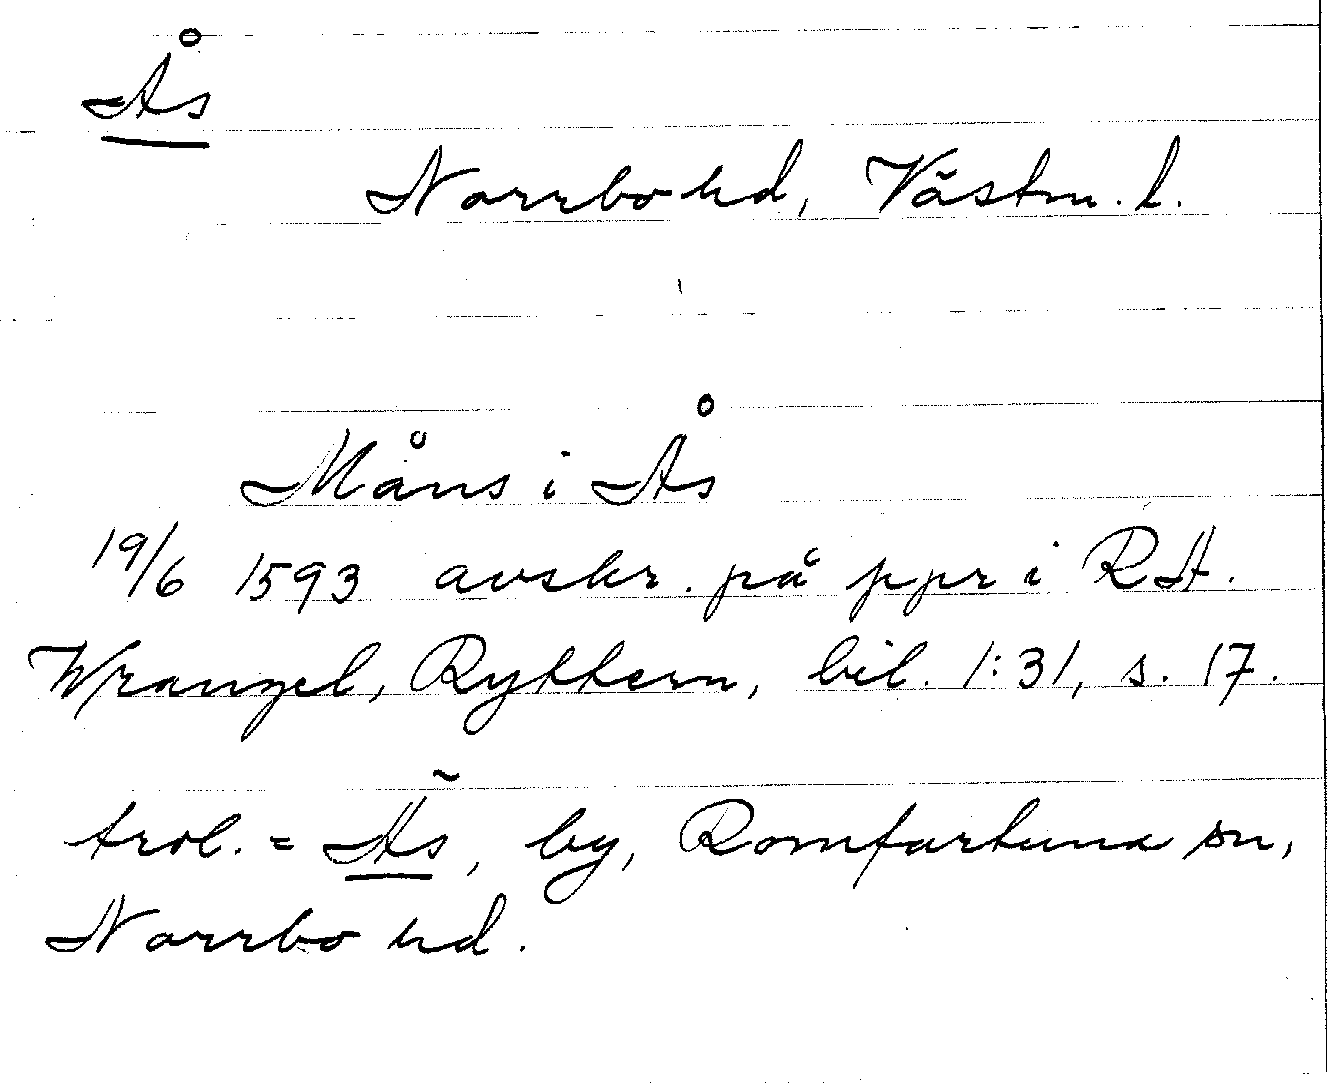 Ås
Norrbo hd, Västm. l.
Måns i Ås
19/6 1593 avskr. på ppr i RA.
Wrangel, Rytterne, bil. 1:31, s. 17.
trol. = Äs, by, Romfartuna sn,
Norrbo hd.